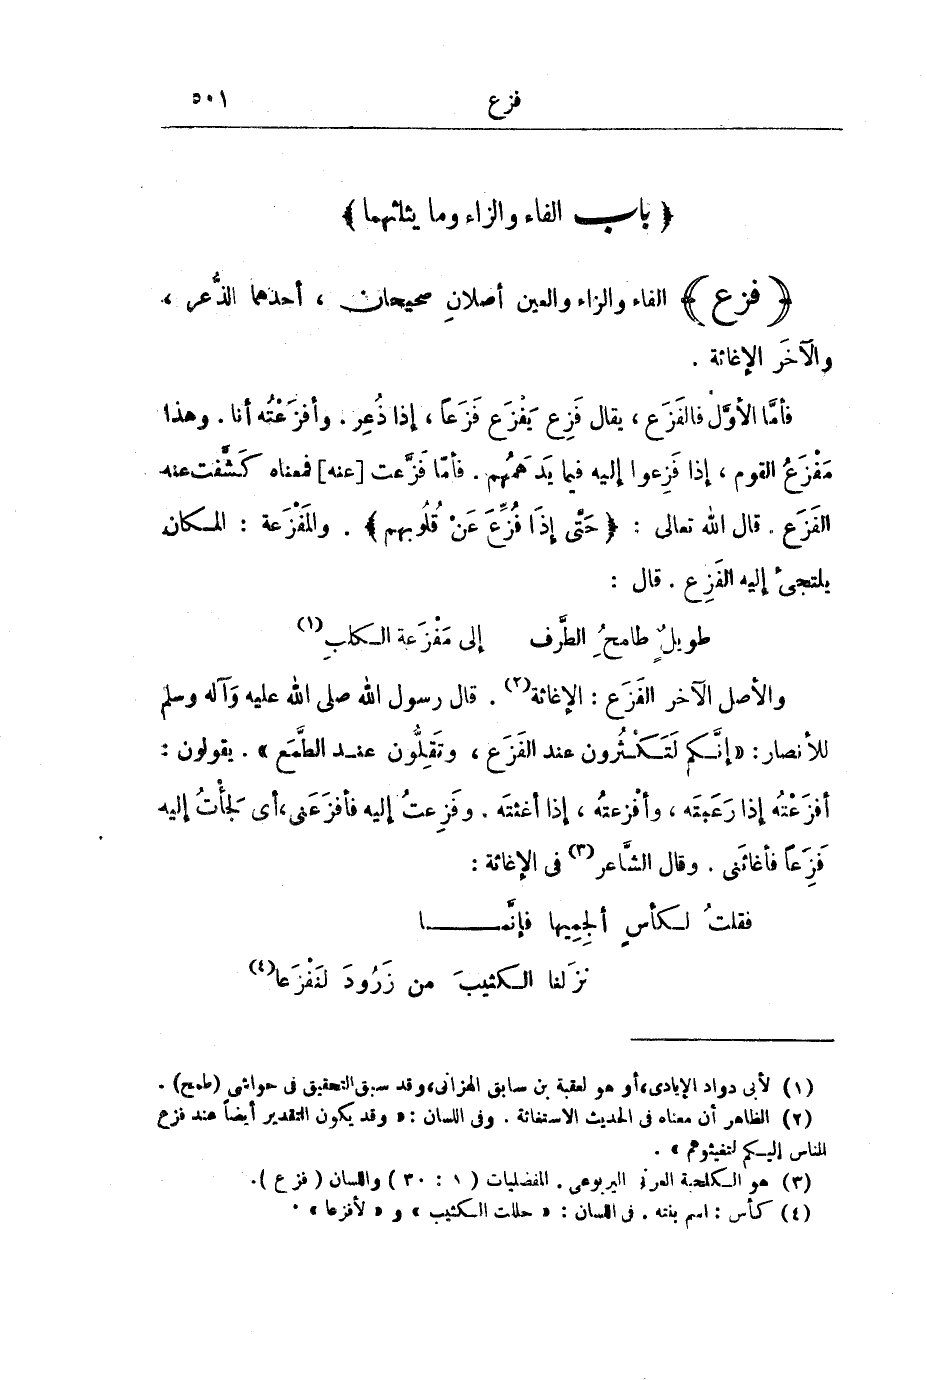 فزع ٥٠١
﴿ باب الفاء والزاء وما يثلثهما ﴾
﴿ فزع ﴾ الفاء والزاء والعين أصلانِ صحيحان ، أحدهما الذُّعر ،
والآخَر الإغاثة .
فأمَّا الأوّل فالفَزَع ، يقال فَزِع يَفْزَع فَزَعاً ، إذا ذُعِر . وأفزَعْتُه أنا . وهذا
مَفْزَعُ القوم ، إذا فَزِعوا إليه فيما يَدهَمُهم . فأمّا فَزَّعت [عنه] فمعناه كَشَّفت عنه
الفَزَع . قال الله تعالى : ﴿ حَتَّى إِذَا فُزِّعَ عَنْ قُلُوبِهم ﴾ . والمَفْزَعة : المكان
يلتجئ إليه الفَزِع . قال :
طويلٌ طامحُ الطَّرف إلى مَفْزَعة الكلبِ(١)
والأصل الآخر الفَزَع : الإغاثة(٢) . قال رسول الله صلى الله عليه وَآله وسلم
للأنصار: « إنَّكم لَتَكْثُرون عند الفَزَع ، وتَقِلُّون عند الطَّمَع » . يقولون :
أفزَعْتُه إذا رَعَبتَه ، وأفْزعتُه ، إذا أغثتَه . وفَزِعتُ إليه فأفزَعَنى، أى لَجأْتُ إليه
فَزِعاً فأغاثَنى . وقال الشَّاعر(٣) فى الإغاثة :
فقلتُ لكأسٍ ألجِمِيها فإنَّما
نزَلنا الكثيبَ من زَرُودَ لنَفْزَعا(٤)
(١) لأبى دواد الإيادى، أو هو لعقبة بن سابق الهزانى، وقد سبق التحقيق فى حواشى (طمح) .
(٢) الظاهر أن معناه فى الحديث الاستغاثة . وفى اللسان : « وقد يكون التقدير أيضاً عند فزع
الناس إليكم لتغيثوهم » .
(٣) هو الكلحبة العرنى اليربوعى . المفضليات ( ١ : ٣٠ ) واللسان ( فزع ).
(٤) كأس : اسم بنته . فى اللسان : « حللت الكثيب » و « لأفزعا » .